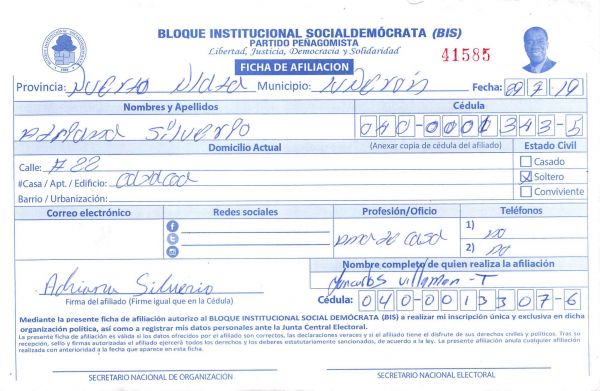 BLOQUE INSTITUCIONAL SOCIALDEMÓCRATA (BIS)
PARTIDO PEÑAGOMISTA
Libertad, Justicia, Democracia y Solidaridad
41585
FICHA DE AFILIACION
Provincia: Puerto Plata Municipio: Fecha: 29 7 19
Nombres y Apellidos Cédula
Adriana Silverio 040-0001343-5
Domicilio Actual (Anexar copia de cédula del afiliado) Estado Civil
Calle: #22 Casado
#Casa / Apt. / Edificio: Soltero
Barrio / Urbanización: Conviviente
Correo electrónico Redes sociales Profesión/Oficio Teléfonos
1) no
ama de casa
2) no
Nombre completo de quien realiza la afiliación
Juncarlos Villaman - T
Adriana Silverio
Firma del afiliado (Firme igual que en la Cédula) Cédula: 040-0013307-6
Mediante la presente ficha de afiliación autorizo al BLOQUE INSTITUCIONAL SOCIAL DEMÓCRATA (BIS) a realizar mi inscripción única y exclusiva en dicha
organización política, así como a registrar mis datos personales ante la Junta Central Electoral.
La presente ficha de afiliación es válida si los datos ofrecidos por el afiliado son correctos, las declaraciones veraces y si el afiliado tiene el disfrute de sus derechos civiles y políticos. Tras su
recepción, sello y firmas autorizadas el afiliado ejercerá todos los derechos y los deberes estatutariamente sancionados, de acuerdo a la ley. La presente afiliación anula cualquier afiliación
realizada con anterioridad a la fecha que aparece en esta ficha.
SECRETARIO NACIONAL DE ORGANIZACIÓN SECRETARIO NACIONAL ELECTORAL